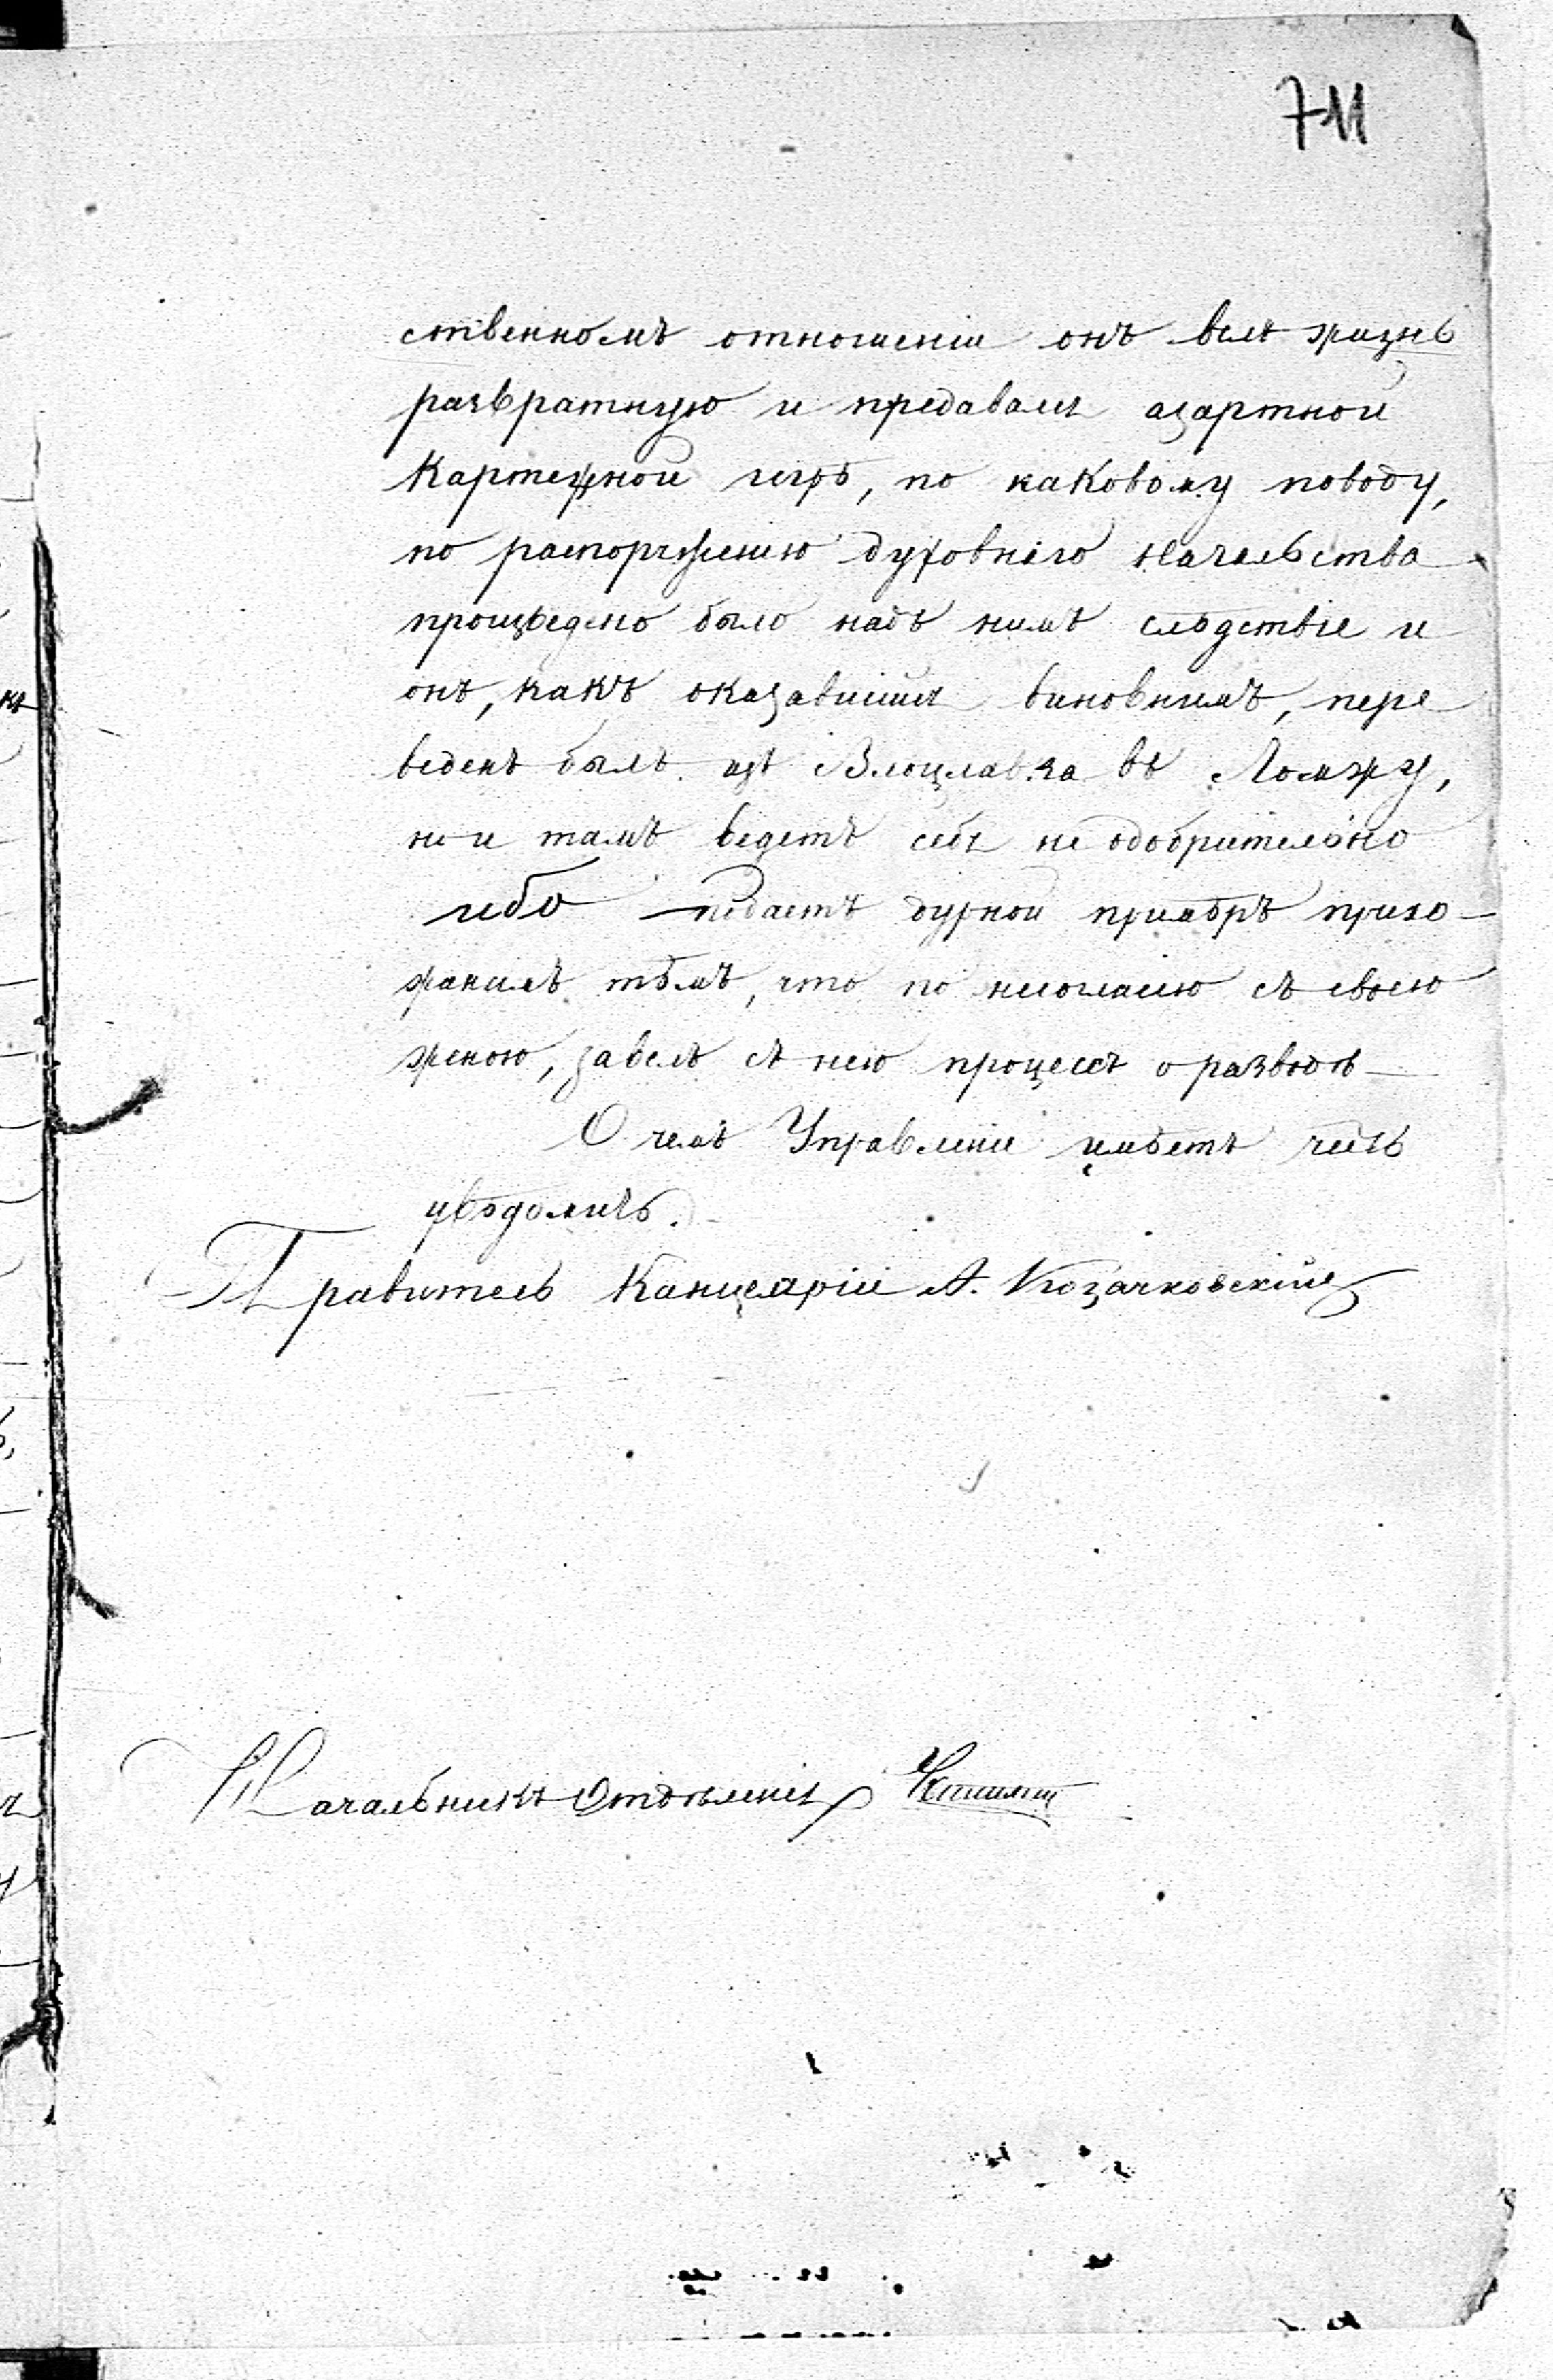 711
ственномъ отношеніи онъ велъ жизнь
развратную и предавался азартной
картежной игрѣ, по каковому поводу,
по распоряженію духовнаго начальства
произведено было надъ нимъ слѣдствіе и
онъ, какъ оказавшійся виновнымъ, пере
веденъ былъ изъ Влоцлавка въ Ломжу,
но и тамъ ведетъ себя не одобрительно
ибо подаетъ дурной примѣръ прихо-
жанамъ тѣмъ, что по несогласію съ своею
женою, завелъ съ нею процессъ о разводѣ
О чемъ Управленіе имѣетъ честь
увѣдомить.
Правитель Канцеляріи А. Козачковскій
Начальникъ Отдѣленія